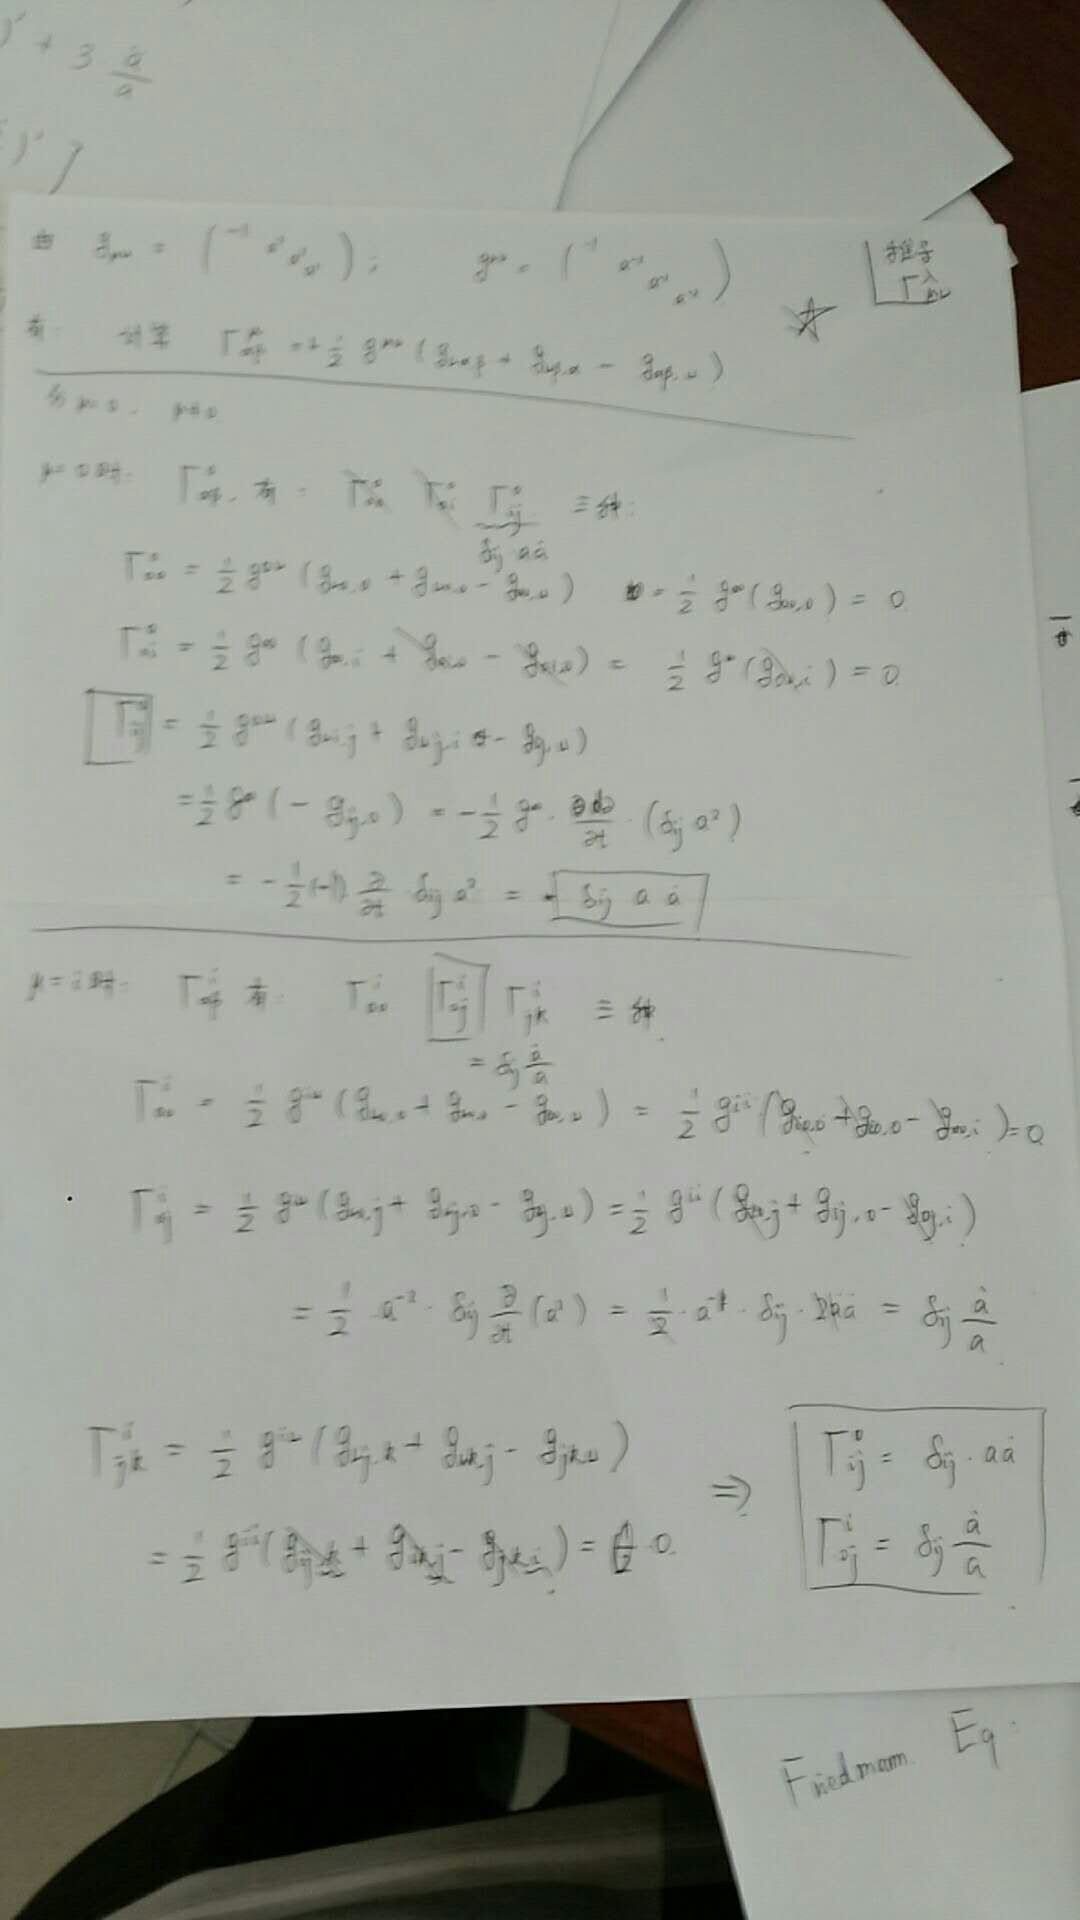 )' + 3 ȧ/a
)' ]
由 g_μν = ( -1 a² a² a² ) ; g^μν = ( -1 a⁻² a⁻² a⁻² )
推导 Γ^λ_μν
有: 计算 Γ^μ_αβ = + 1/2 g^μν ( g_να,β + g_νβ,α − g_αβ,ν ) ☆
分 μ=0, μ≠0
μ=0时: Γ^0_αβ 有: Γ^0_00 Γ^0_0i Γ^0_ij 三种:
δ_ij aȧ
Γ^0_00 = 1/2 g^0ν ( g_ν0,0 + g_ν0,0 − g_00,ν ) = 1/2 g^00 ( g_00,0 ) = 0
Γ^0_0i = 1/2 g^00 ( g_00,i + g_0i,0 − g_0i,0 ) = 1/2 g^00 ( g_00,i ) = 0
Γ^0_ij = 1/2 g^0ν ( g_νi,j + g_νj,i − g_ij,ν )
= 1/2 g^00 ( − g_ij,0 ) = − 1/2 g^00 · ∂/∂t · ( δ_ij a² )
= − 1/2 (−1) ∂/∂t δ_ij a² = δ_ij a ȧ
μ=i时: Γ^i_αβ 有: Γ^i_00 Γ^i_0j Γ^i_jk 三种
= δ_ij ȧ/a
Γ^i_00 = 1/2 g^iν ( g_ν0,0 + g_ν0,0 − g_00,ν ) = 1/2 g^ii ( g_i0,0 + g_i0,0 − g_00,i ) = 0
Γ^i_0j = 1/2 g^iν ( g_ν0,j + g_νj,0 − g_0j,ν ) = 1/2 g^ii ( g_i0,j + g_ij,0 − g_0j,i )
= 1/2 · a⁻² · δ_ij ∂/∂t (a²) = 1/2 · a⁻² · δ_ij · 2aȧ = δ_ij ȧ/a
Γ^i_jk = 1/2 g^iν ( g_νj,k + g_νk,j − g_jk,ν )
= 1/2 g^ii ( g_ij,k + g_ik,j − g_jk,i ) = 0
⇒ Γ^0_ij = δ_ij · aȧ
Γ^i_0j = δ_ij ȧ/a
Friedmam Eq: